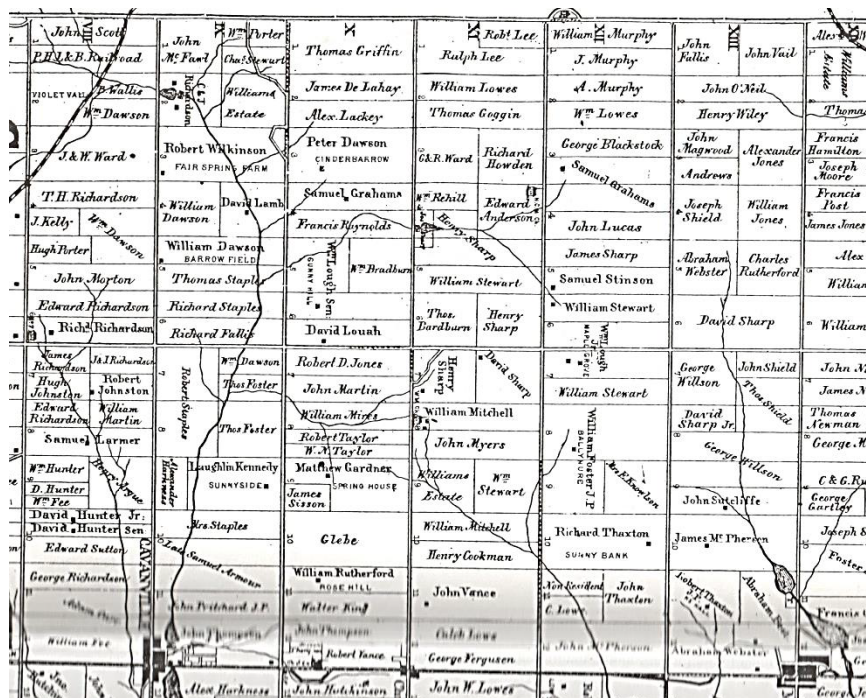 VIII
IX
X
XI
XII
XIII
John Scott
P.H.L & B. Railroad
VIOLET VALE
B. Wallis
Wm Dawson
J. & W. Ward
T. H. Richardson
J. Kelly
Wm Dawson
Hugh Porter
John Morton
Edward Richardson
Richd Richardson
James Richardson
J & I Richardson
Hugh Johnston
Robert Johnston
Edward Richardson
William Martin
Samuel Larmer
Wm Hunter
Henry Argue
D. Hunter
Wm Fee
David Hunter Jr.
David Hunter Sen
Edward Sutton
George Richardson
William Fee
CAVANVILLE
John Mc Fawl
Wm Porter
Chas Stewart
C & J Richardson
Williams Estate
Robert Wilkinson
FAIR SPRING FARM
William Dawson
David Lamb
William Dawson
BARROW FIELD
Thomas Staples
Richard Staples
Richard Fallis
Robert Staples
Wm Dawson
Thos Foster
Thos Foster
Alexander Harkness
Laughlin Kennedy
SUNNYSIDE
Mrs. Staples
Late Samuel Armour
John Pritchard J.P.
John Thompson
Alex Harkness
Thomas Griffin
James De Lahay
Alex. Lackey
Peter Dawson
CINDERBARROW
Samuel Grahams
Francis Raynolds
Wm Lough Sen
SUNNY HILL
Wm Bradburn
David Lough
Robert D. Jones
John Martin
William Mires
Robert Taylor
W. N. Taylor
Matthew Gardner
SPRING HOUSE
James Sisson
Glebe
William Rutherford
ROSE HILL
Walter King
John Thompson
Robert Vance
John Hutchinson
Robt Lee
Ralph Lee
William Lowes
Thomas Goggin
G & R. Ward
Richard Howden
Wm Rehill
Edward Anderson
Henry Sharp
William Stewart
Thos. Bardburn
Henry Sharp
Henry Sharp
David Sharp
William Mitchell
John Myers
Williams Estate
Wm Stewart
William Mitchell
Henry Cookman
John Vance
Caleb Lowe
George Ferguson
John W. Lowes
William Murphy
J. Murphy
A. Murphy
Wm Lowes
George Blackstock
Samuel Grahams
John Lucas
James Sharp
Samuel Stinson
William Stewart
Wm Lough J
MAPLE GROVE
William Stewart
William Foster J.P
BALLYNURE
Mrs. E. Knowlson
Richard Thaxton
SUNNY BANK
Non Resident
John Thaxton
C. Lowe
John Mc Pherson
John Fallis
John Vail
John O'Neil
Henry Wiley
John Magwood
Alexander Jones
Andrews
Joseph Shield
William Jones
Abraham Webster
Charles Rutherford
David Sharp
George Willson
John Shield
Thos Shield
David Sharp Jr.
George Willson
John Sutcliffe
James Mc Phereen
Robert Thaxton
Abraham
Abraham Webster
Williams Estate
Thomas
Francis Hamilton
Joseph Moore
Francis Post
James Jones
Alex
William
William
John N.
James N.
Thomas Newman
George M
C & G. R
George Gartley
Joseph S
Foster
Francis
George